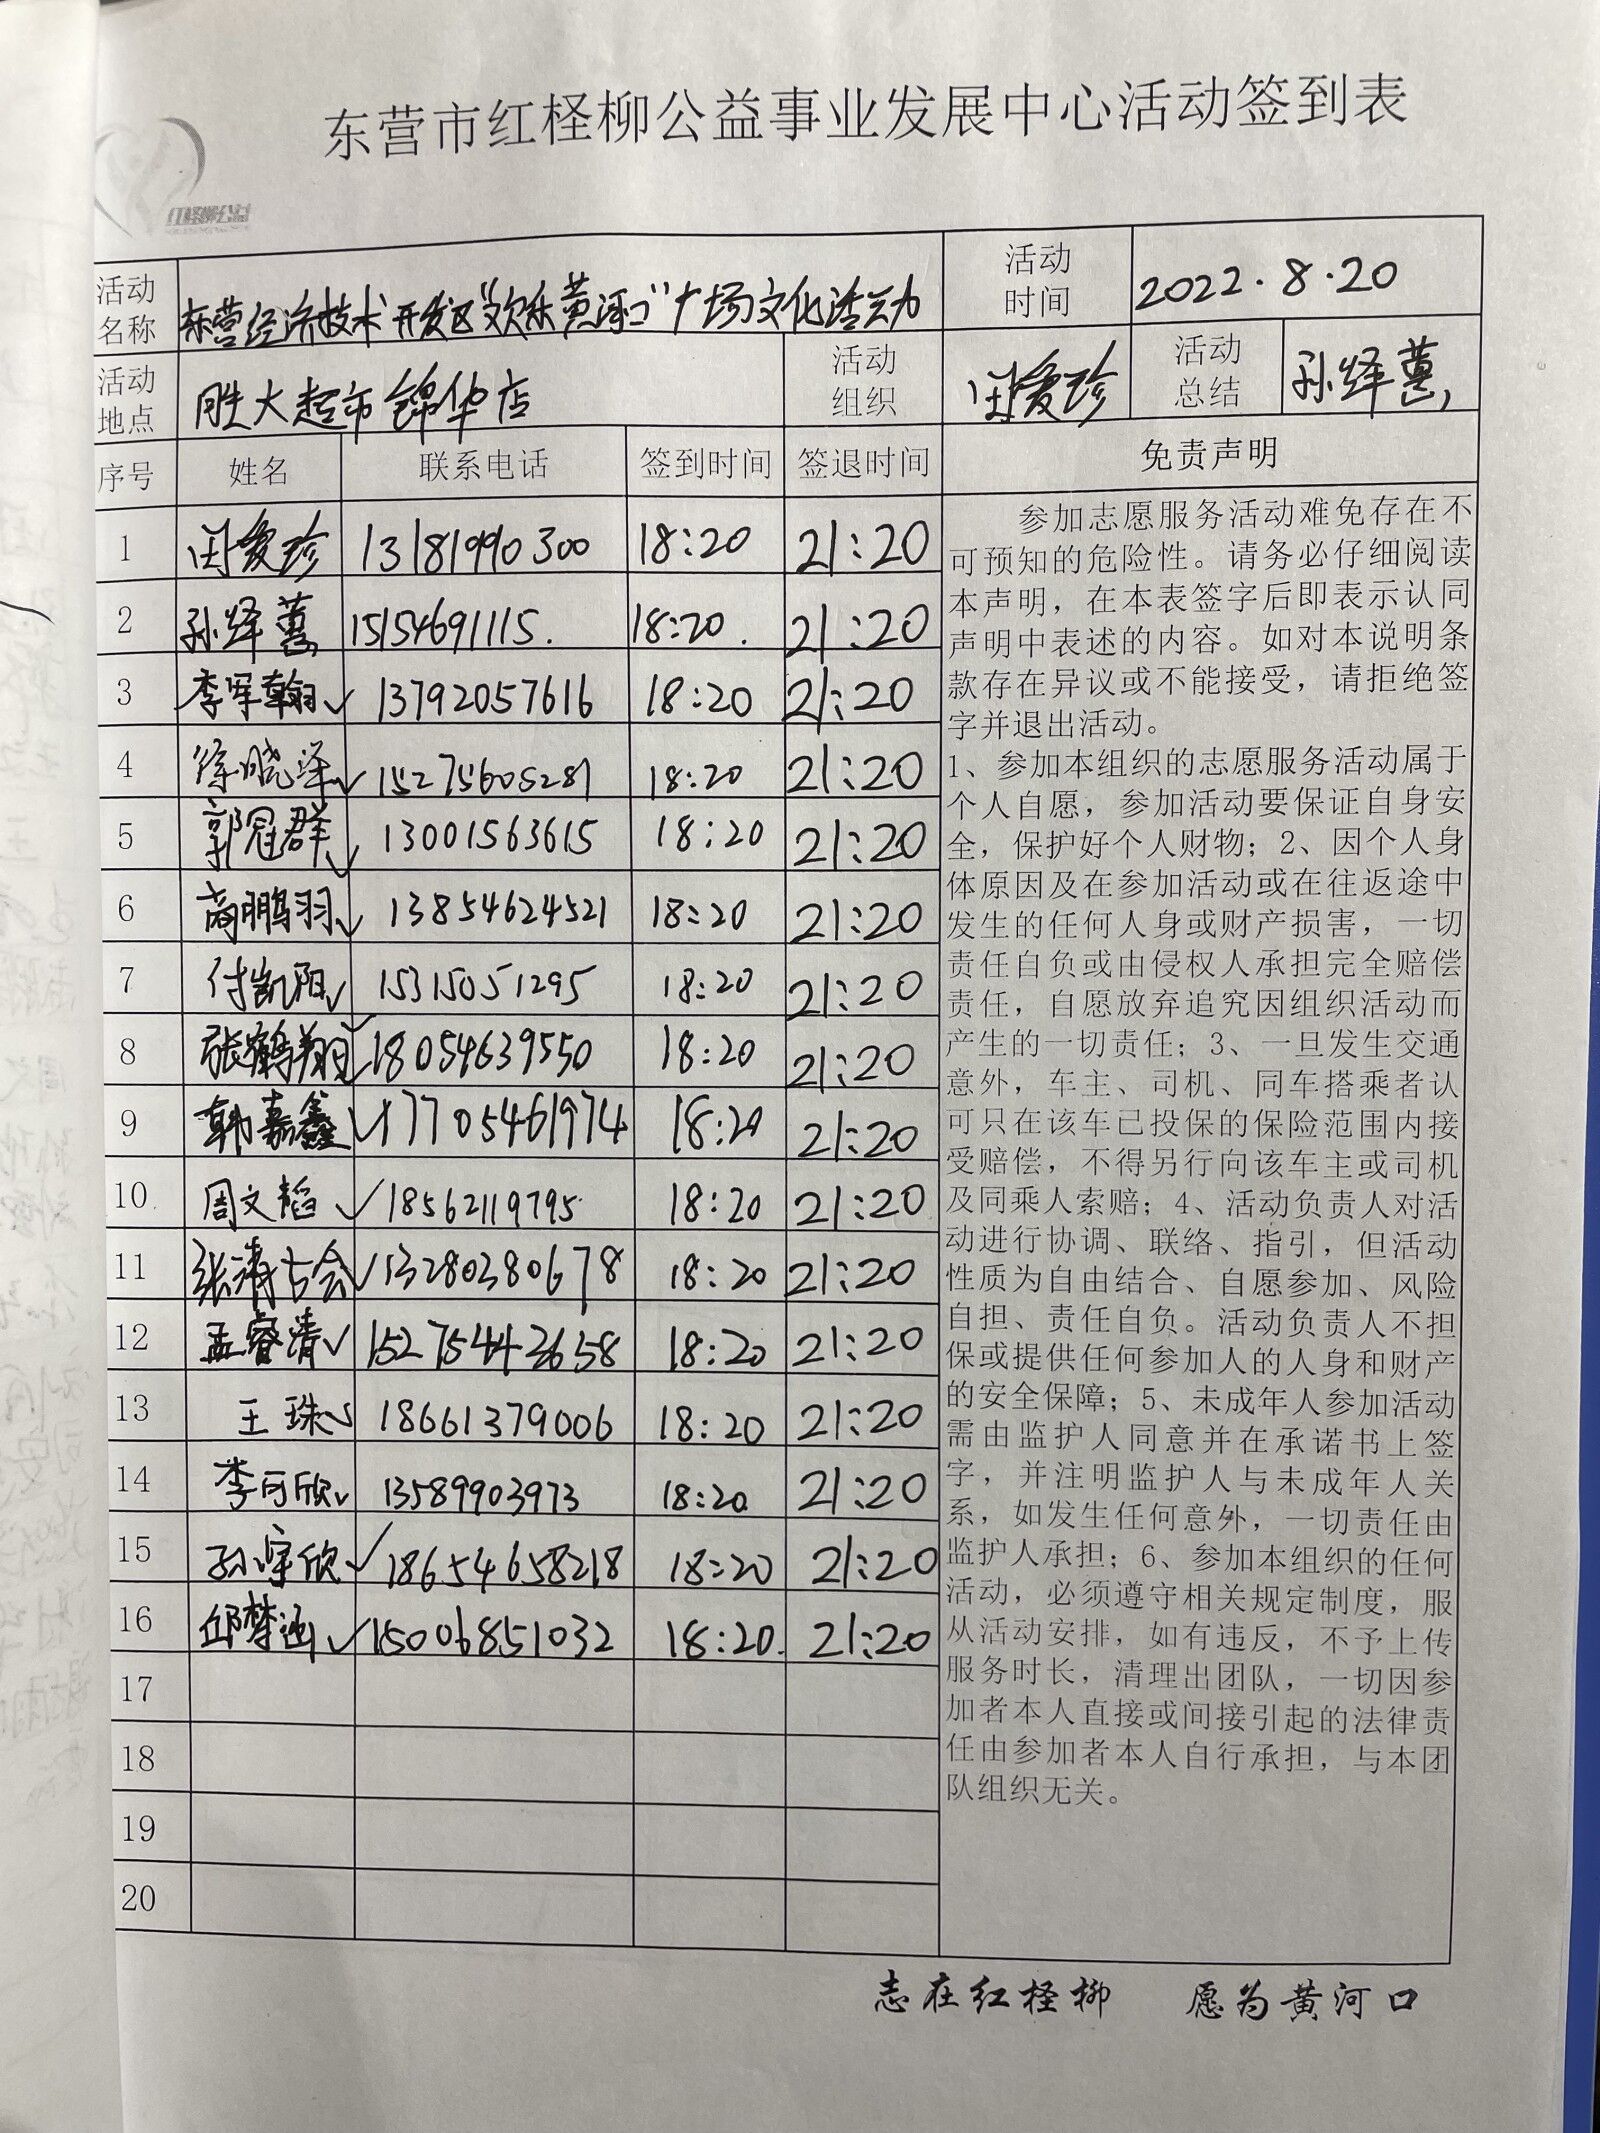 东营市红柽柳公益事业发展中心活动签到表
红柽柳公益
活动名称 东营经济技术开发区“欢乐黄河口”广场文化活动 活动时间 2022.8.20
活动地点 胜大超市锦华店 活动组织 闵爱珍 活动总结 孙烽
序号 姓名 联系电话 签到时间 签退时间 免责声明
1 闵爱珍 13181990300 18:20 21:20
2 孙烽 15154691115. 18:20. 21:20
3 李军翰 13792057616 18:20 21:20
4 徐晓泽 15275605281 18:20 21:20
5 郭冠群 13001563615 18:20 21:20
6 商鹏羽 13854624521 18:20 21:20
7 付凯阳 15315051295 18:20 21:20
8 张鹤翔 18054639550 18:20 21:20
9 韩嘉鑫 17705461974 18:20 21:20
10 周文韬 18562119795 18:20 21:20
11 张 13280380678 18:20 21:20
12 孟睿清 15275442658 18:20 21:20
13 王珠 18661379006 18:20 21:20
14 李可欣 13589903973 18:20 21:20
15 孙宇欣 18654658218 18:20 21:20
16 邱梦涵 15006851032 18:20. 21:20
17
18
19
20
参加志愿服务活动难免存在不
可预知的危险性。请务必仔细阅读
本声明，在本表签字后即表示认同
声明中表述的内容。如对本说明条
款存在异议或不能接受，请拒绝签
字并退出活动。
1、参加本组织的志愿服务活动属于
个人自愿，参加活动要保证自身安
全，保护好个人财物；2、因个人身
体原因及在参加活动或在往返途中
发生的任何人身或财产损害，一切
责任自负或由侵权人承担完全赔偿
责任，自愿放弃追究因组织活动而
产生的一切责任；3、一旦发生交通
意外，车主、司机、同车搭乘者认
可只在该车已投保的保险范围内接
受赔偿，不得另行向该车主或司机
及同乘人索赔；4、活动负责人对活
动进行协调、联络、指引，但活动
性质为自由结合、自愿参加、风险
自担、责任自负。活动负责人不担
保或提供任何参加人的人身和财产
的安全保障；5、未成年人参加活动
需由监护人同意并在承诺书上签
字，并注明监护人与未成年人关
系，如发生任何意外，一切责任由
监护人承担；6、参加本组织的任何
活动，必须遵守相关规定制度，服
从活动安排，如有违反，不予上传
服务时长，清理出团队，一切因参
加者本人直接或间接引起的法律责
任由参加者本人自行承担，与本团
队组织无关。
志在红柽柳 愿为黄河口